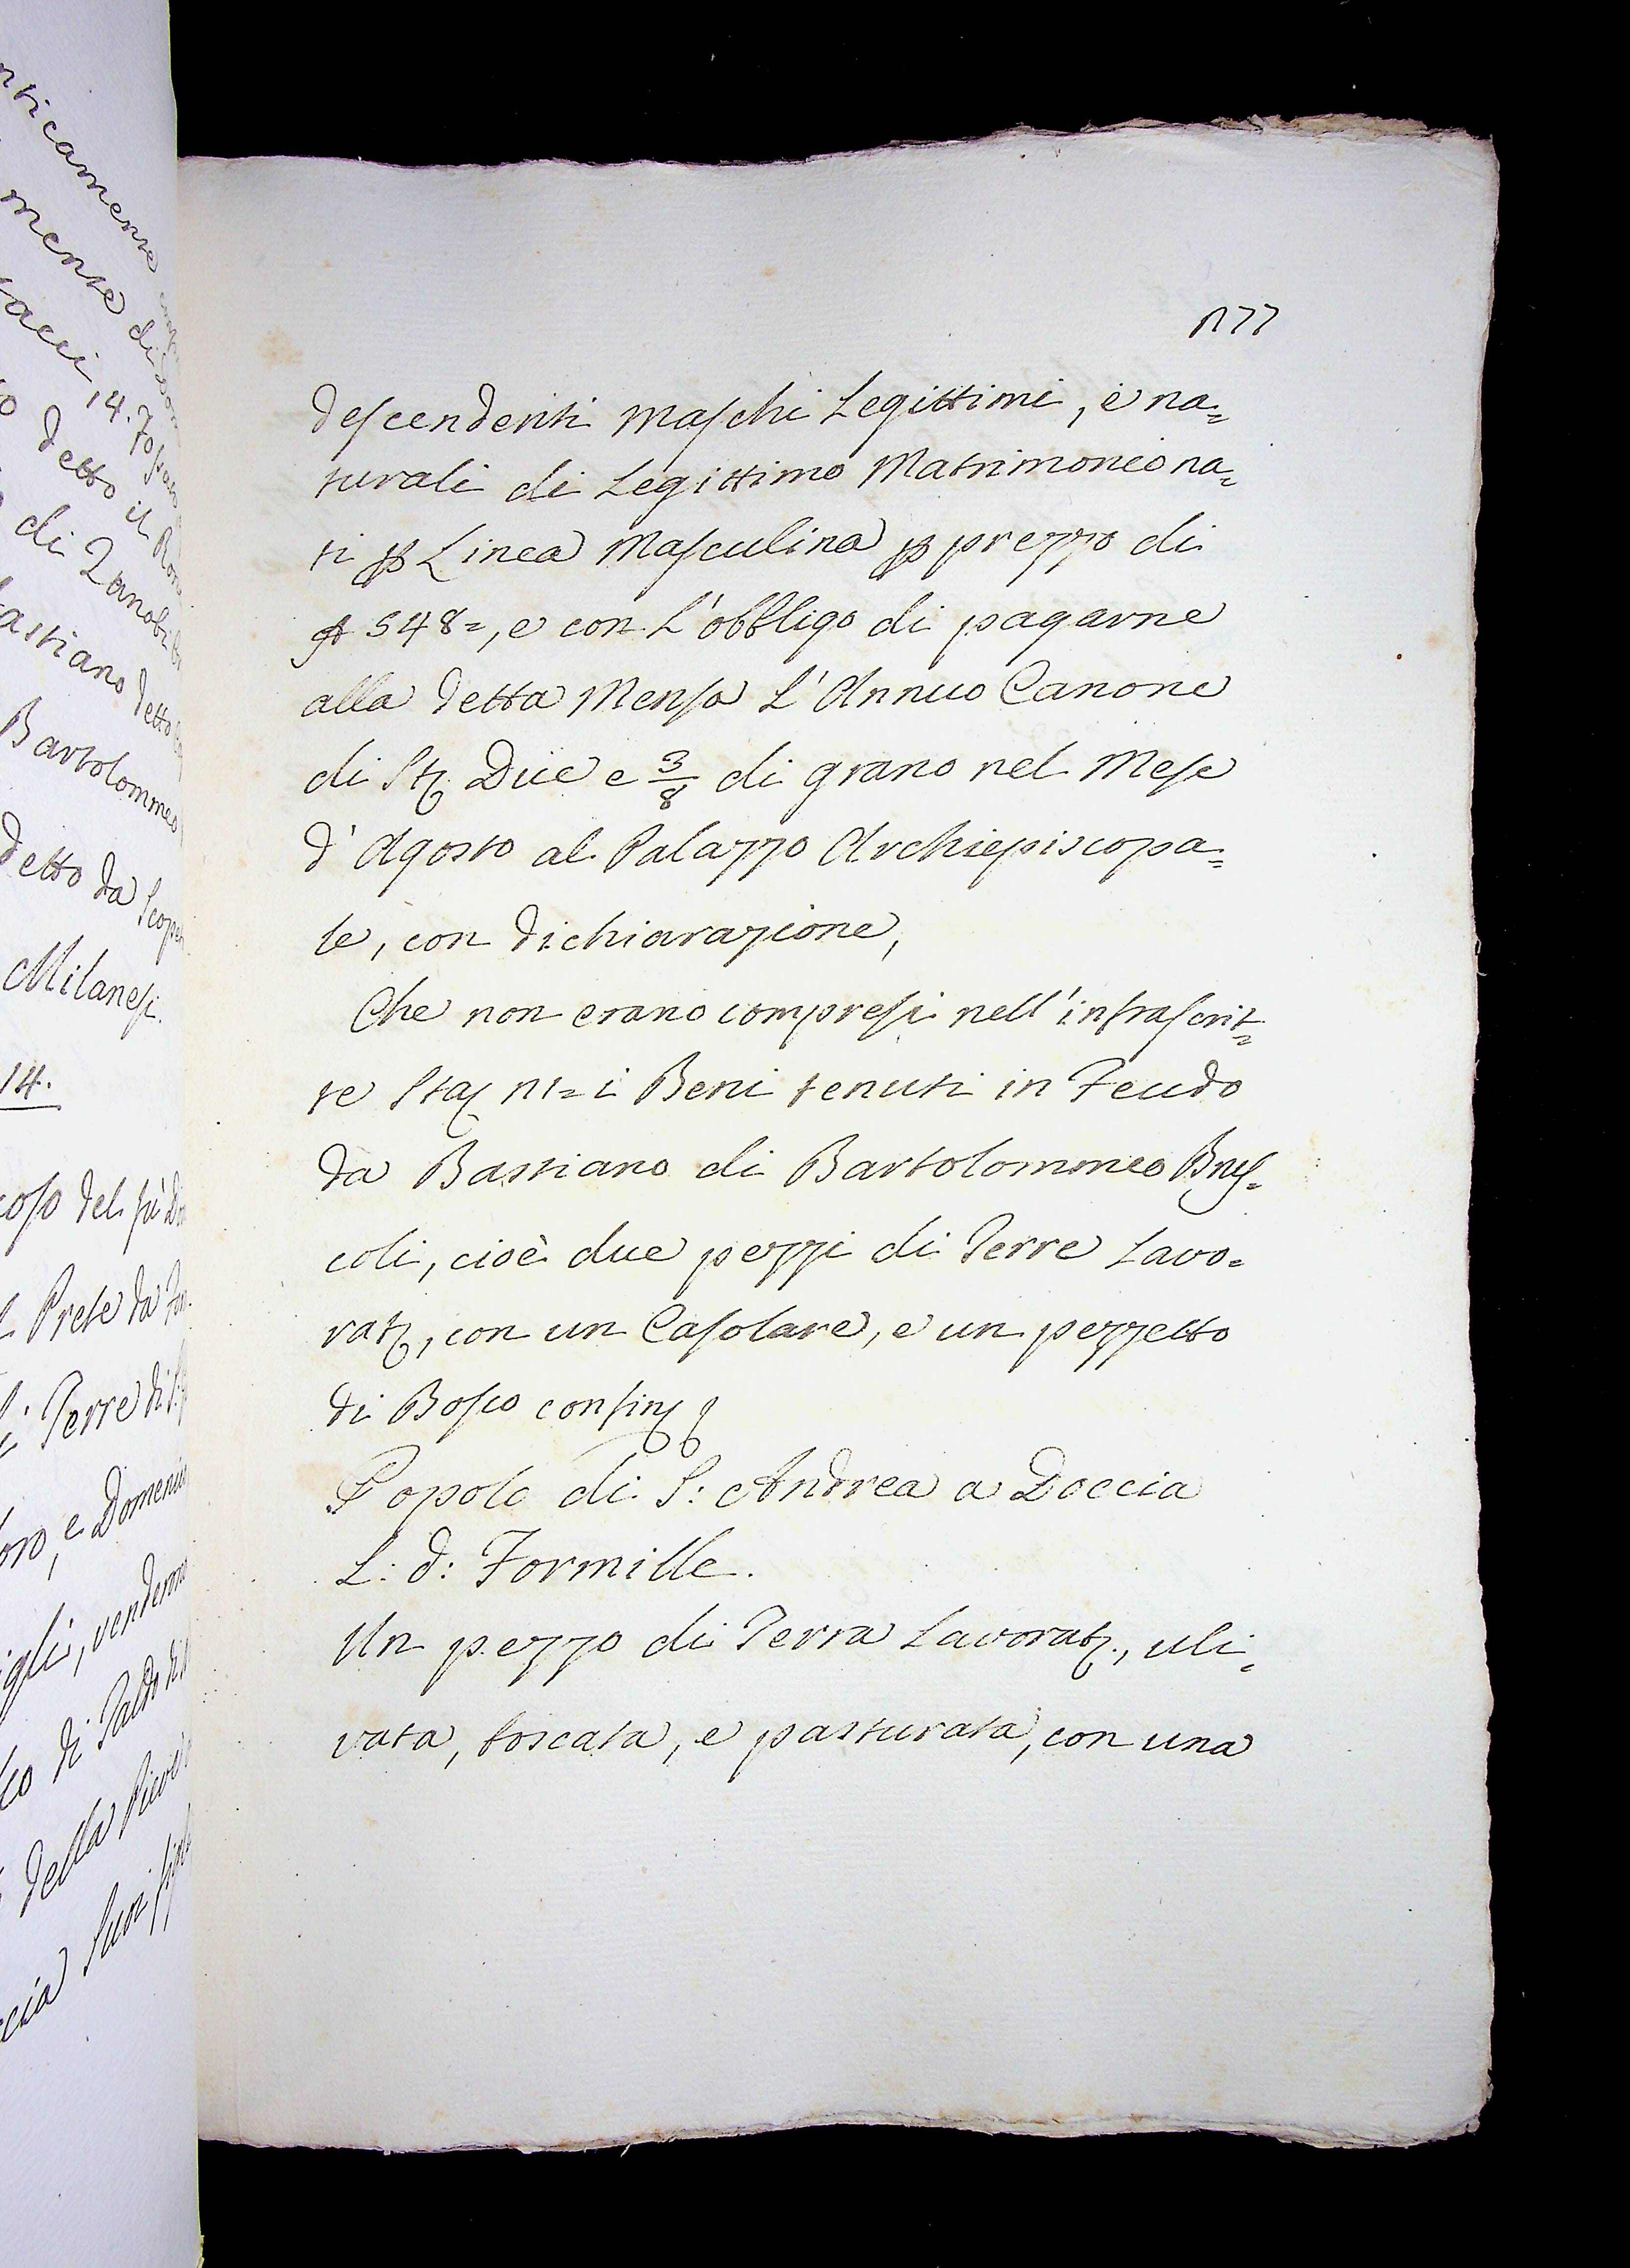 nticamente
mente di
14.
detto il
di Zanobi
astiano detto
Bartolommeo
detto da Scope
Milanesi.
14.
coso del
Prete da
Terre di
oro, e Domenico
igli, venderono
co di Taldo di
della Pieve
ccia Suoi figli
177
descendenti maschi Legittimi, e na=
turali di Legittimo Matrimonio na=
ti p Linea Masculina p prezzo di
548=, e con L'obbligo di pagarne
alla detta Mensa L'Annuo Canone
di Sta Due e 3/8 di grano nel Mese
d'Agosto al Palazzo Archiepiscopa=
le, con dichiarazione,
Che non erano compresi nell'infrascrit=
te Sta 11= i Beni tenuti in Feudo
da Bastiano di Bartolommeo Brus=
coli, cioè due pezzi di Terre Lavo=
rat, con un Casolare, e un pezzetto
di Bosco confin
Popolo di S: Andrea a Doccia
L: d: Formille.
Un pezzo di Terra Lavorat, uli=
vata, boscata, e pasturata, con una